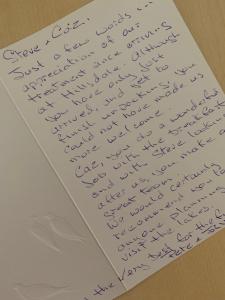 Steve & Caz.
Just a few words in
appreciation of our
treatment since arriving
at Hillsdale. Although
you have only just
arrived, and yet to
finish unpacking, you
could not have made us
more welcome.
Caz you do a wonderful
job with the breakfasts
and with Steve looking
after us, you make a
great team.
We would certainly
recommend you to
anyone planning
visit the lakes.
the very best for the
Pete &